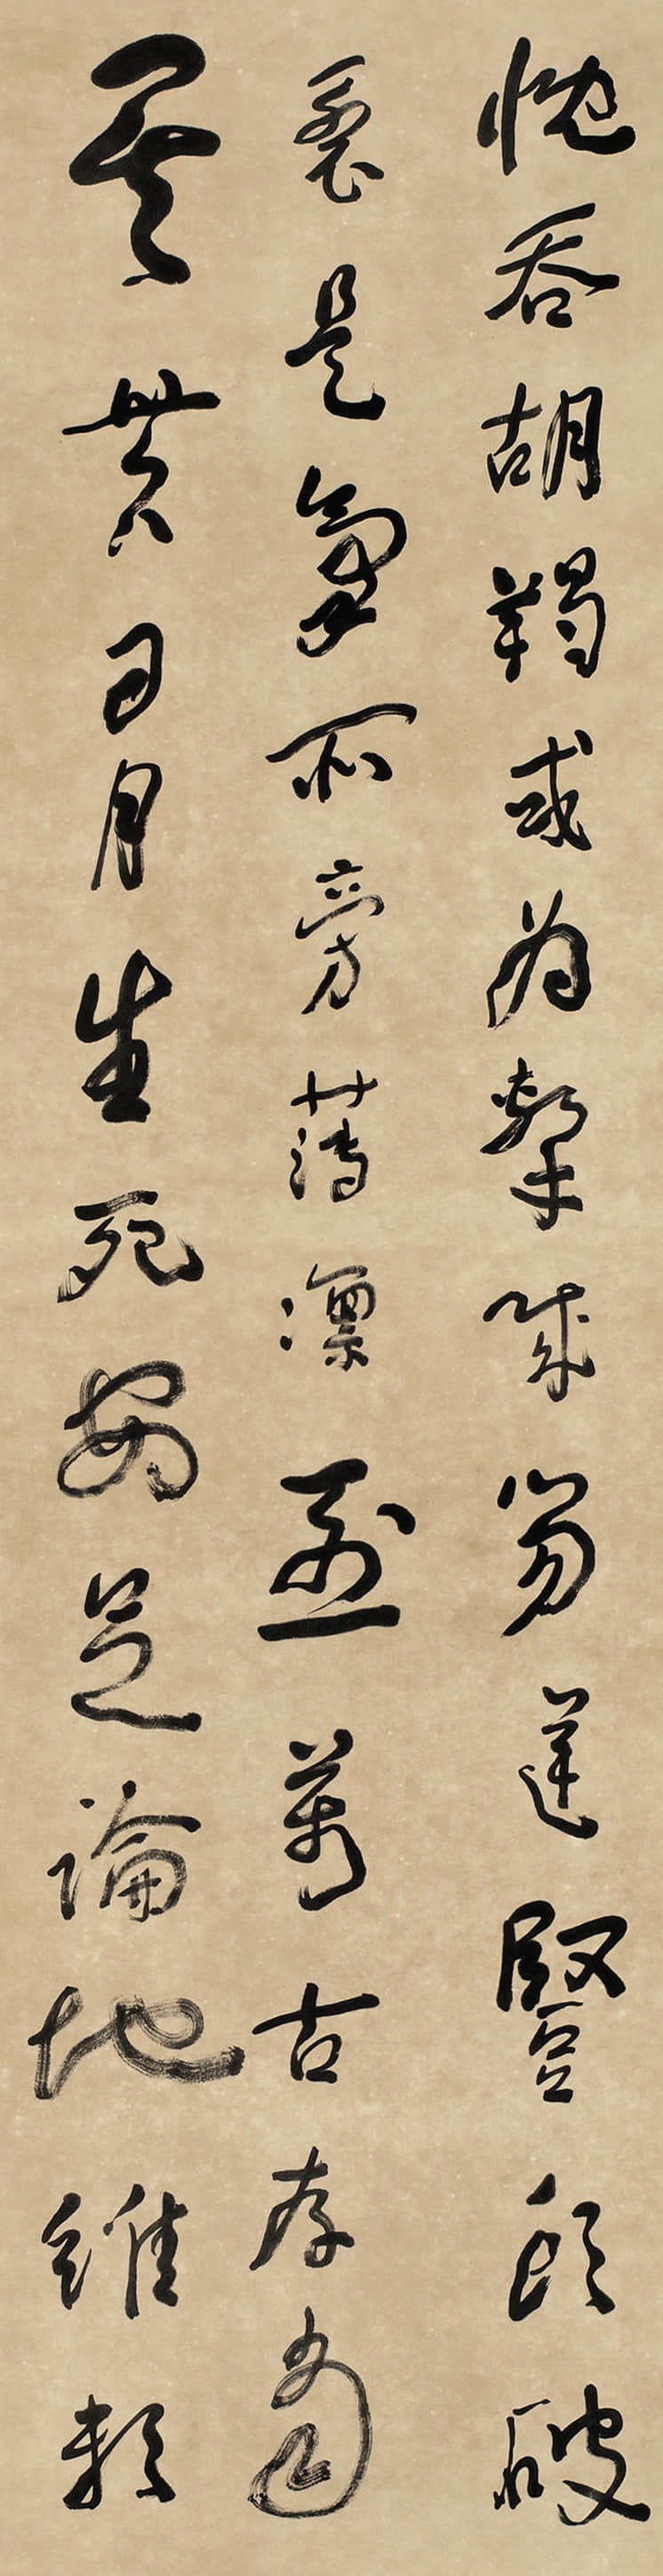 慨吞胡羯或為擊賊笏逆豎頭破
裂是氣所旁薄凛烈萬古存當
其貫日月生死安足論地維賴